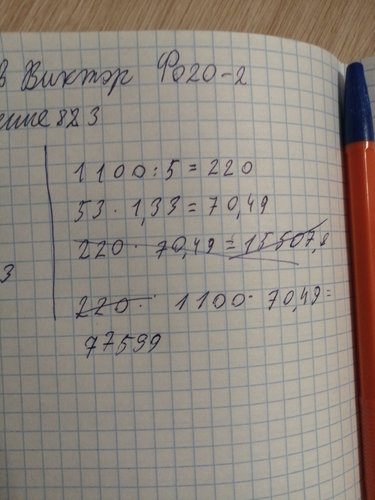 в Виктор Фо20-2
ение 823
1100:5=220
53·1,33=70,49
220·70,49=15507,8
3
220· 1100·70,49=
77539